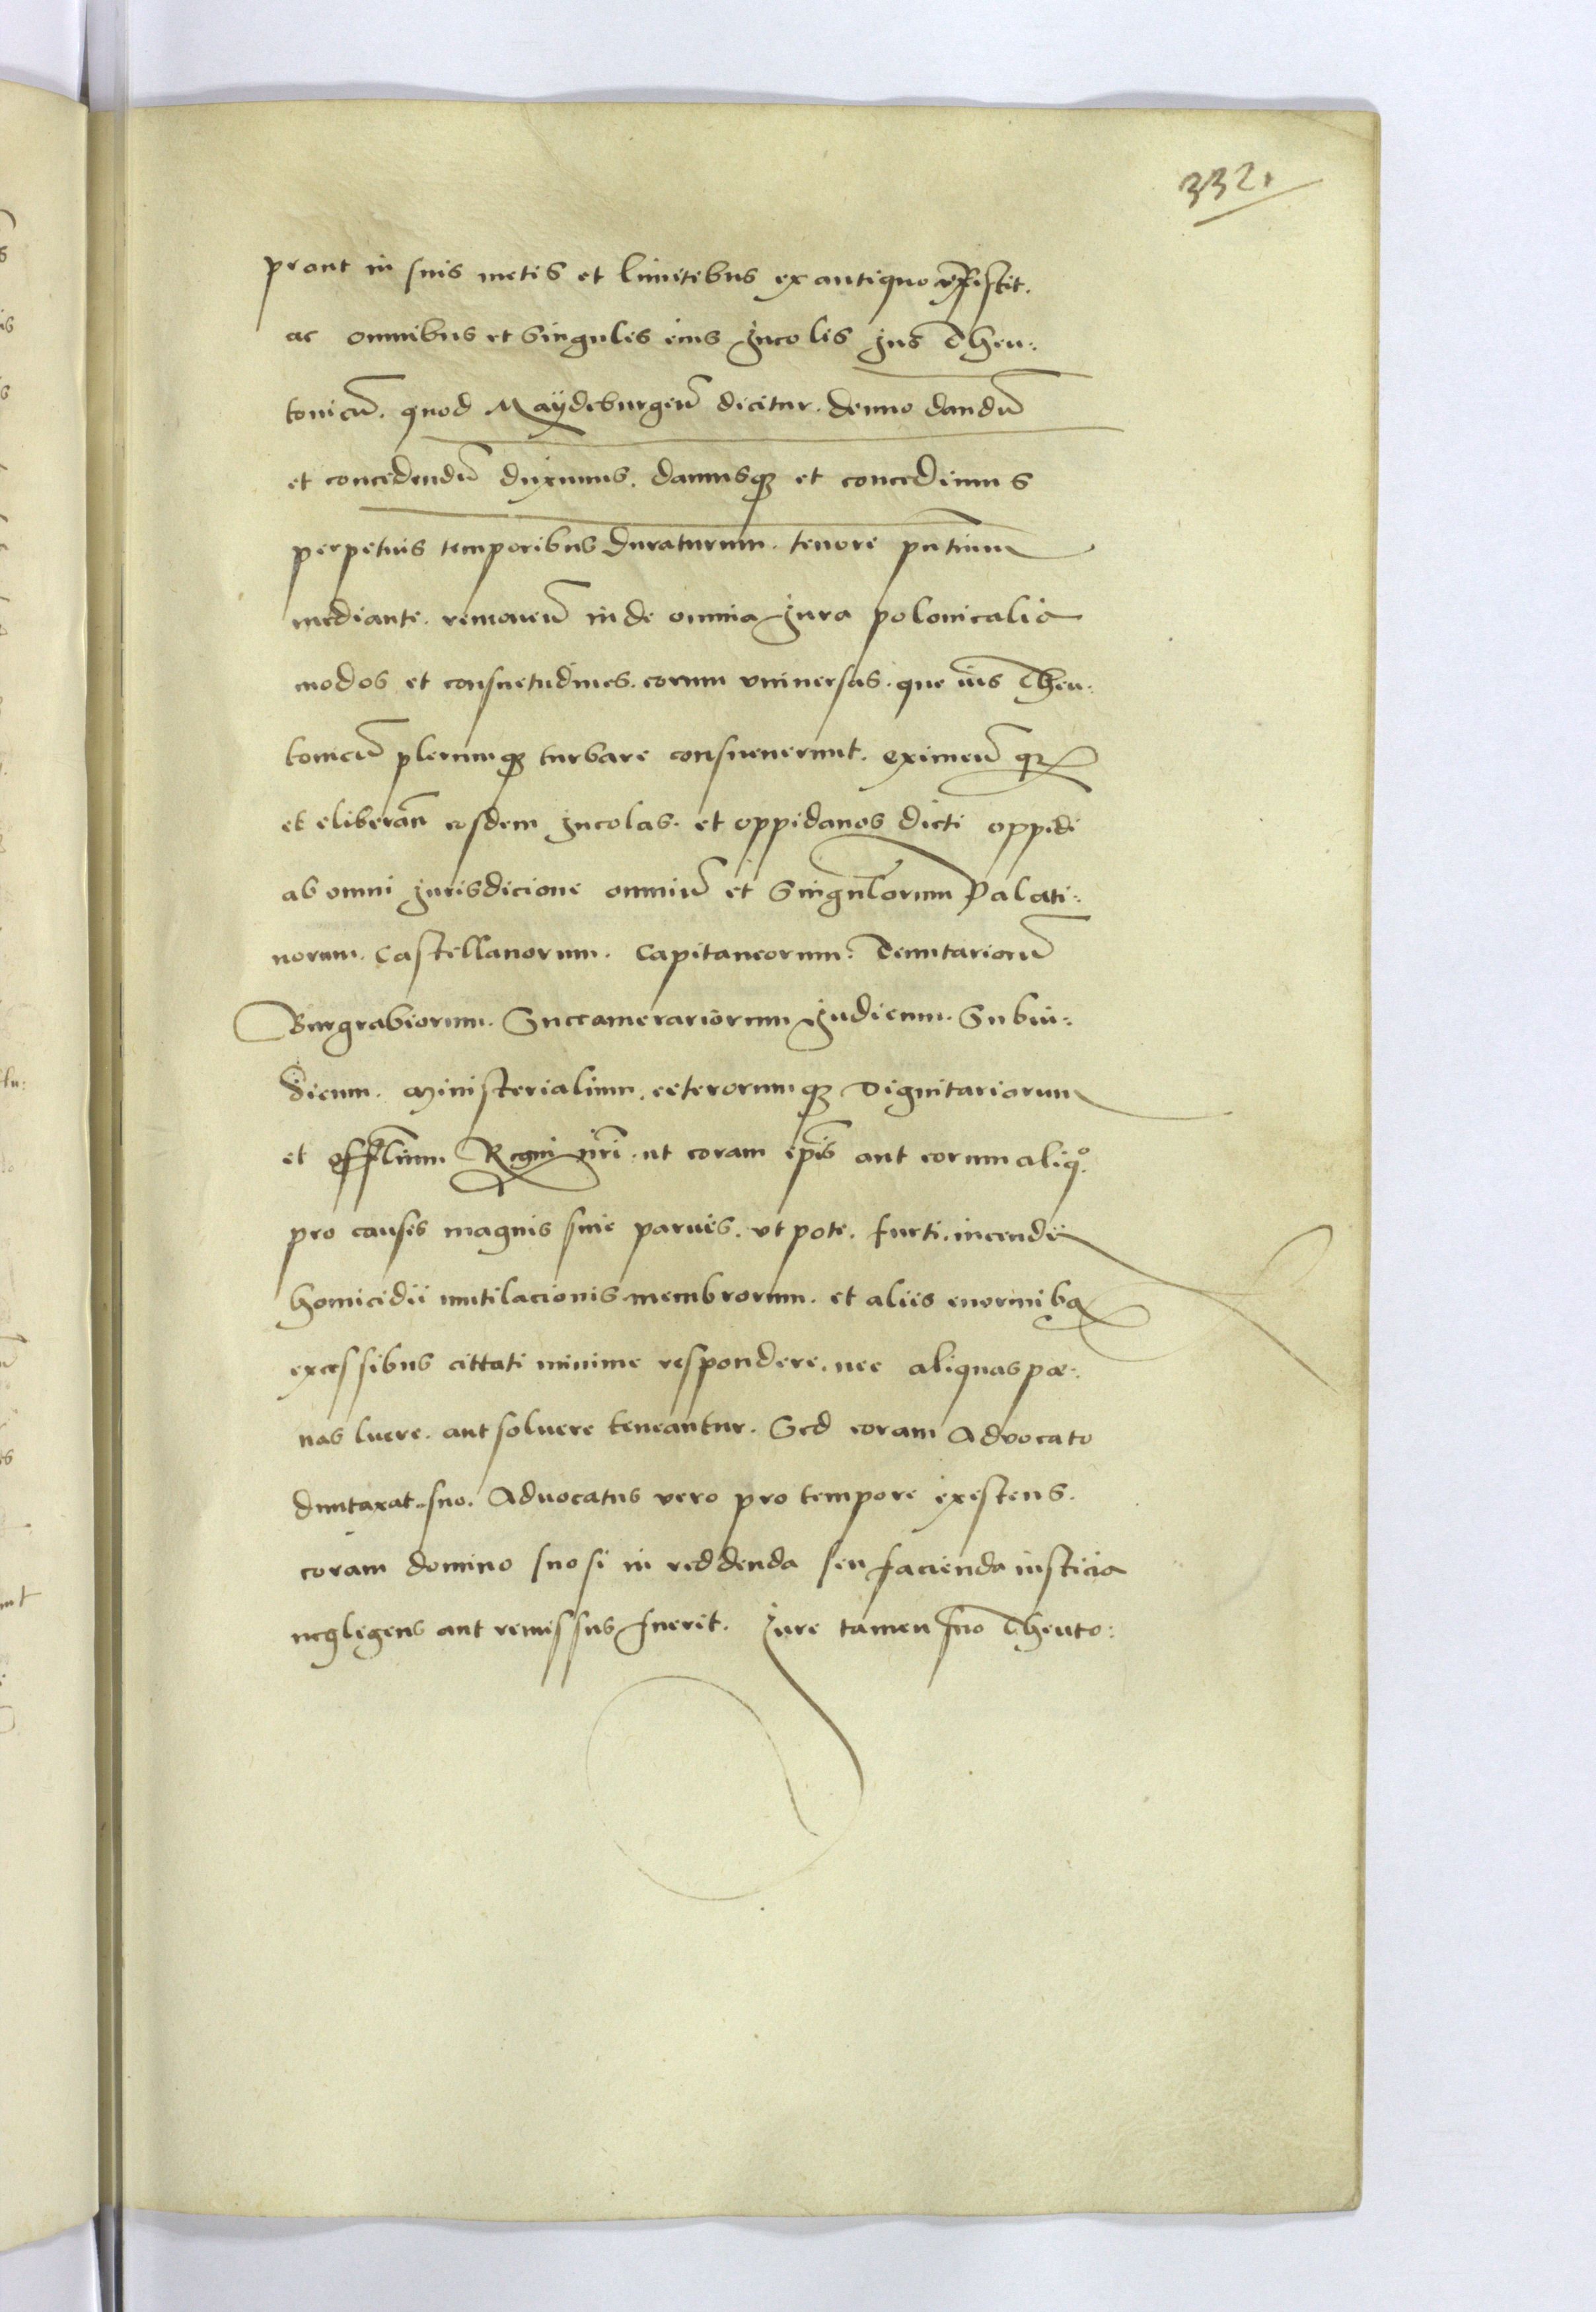 332.
prout in suis metis et limitibus ex antiquo existit.
ac omnibus et singulis eius Incolis Ius Theu:
tonicū. quod Maÿdeburgeñ dicitur. denuo dandū
et concedendū duximus. damusq₃ et concedimus
perpetuis temporibus duraturum. tenore pñtium
mediante. remoueñ inde omnia Iura polonicalia
modos et consuetudines. eorum vniuersas. que ius Theu:
tonicū plerumq₃ turbare consueuerunt. eximeñ q₃
et eliberañ eosdem Incolas. et oppidanos dicti oppidi
ab omni Iurisdicione omniū et Singulorum Palati:
norum. Castellanorum. Capitaneorum. Tenutariorū
Burgrabiorum. Succamerariorum Iudicum. Subiu:
dicum. Ministerialium. ceterorumq₃ Dignitariorum
et offlium Regni nr̄i. ut coram ip̄is aut eorum aliq̊.
pro causis magnis siue paruis. vt pote. furti. incendii
homicidii mutilacionis membrorum. et aliis enormibq
excessibus cittati minime respondere. nec aliquas pœ:
nas luere. aut soluere teneantur. Sed coram Aduocato
duntaxat suo. Aduocatus vero pro tempore existens.
coram domino suo si in reddenda seu facienda iusticia
neglegens aut remissus fuerit. Iure tamen suo Theuto: